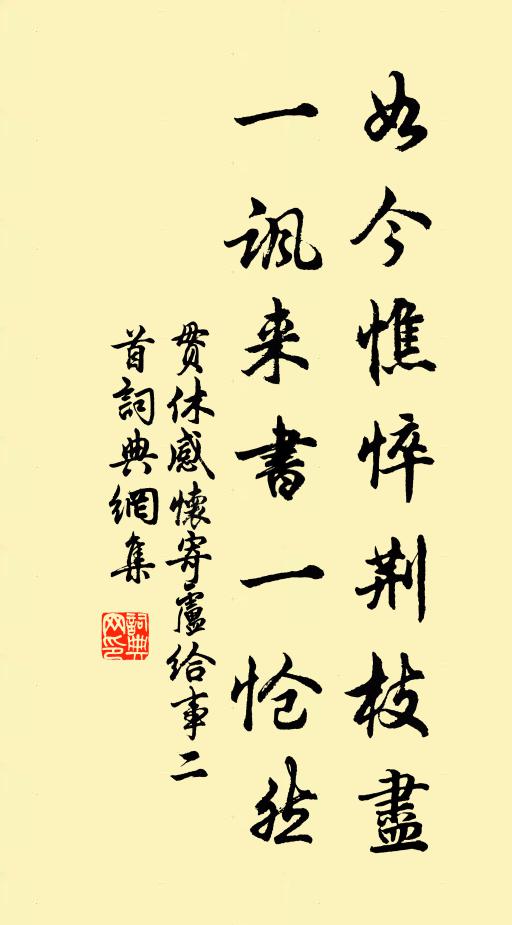 如今憔悴荆枝盡
一諷来書一愴然
貫休感懷寄盧給事二
首詞典網集
詞典网印